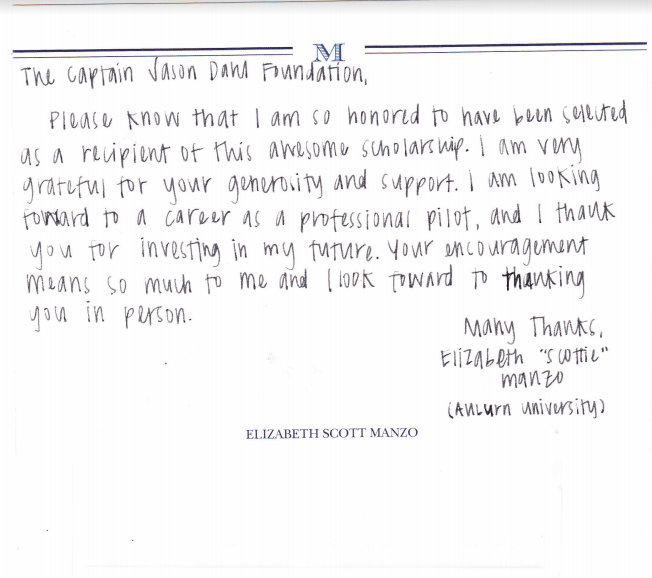 M
The Captain Jason Dahl Foundation,
Please know that I am so honored to have been selected
as a recipient of this awesome scholarship. I am very
grateful for your generosity and support. I am looking
forward to a career as a professional pilot, and I thank
you for investing in my future. Your encouragement
means so much to me and I look forward to thanking
you in person.
Many Thanks,
Elizabeth "Scottie"
Manzo
(Auburn University)
ELIZABETH SCOTT MANZO